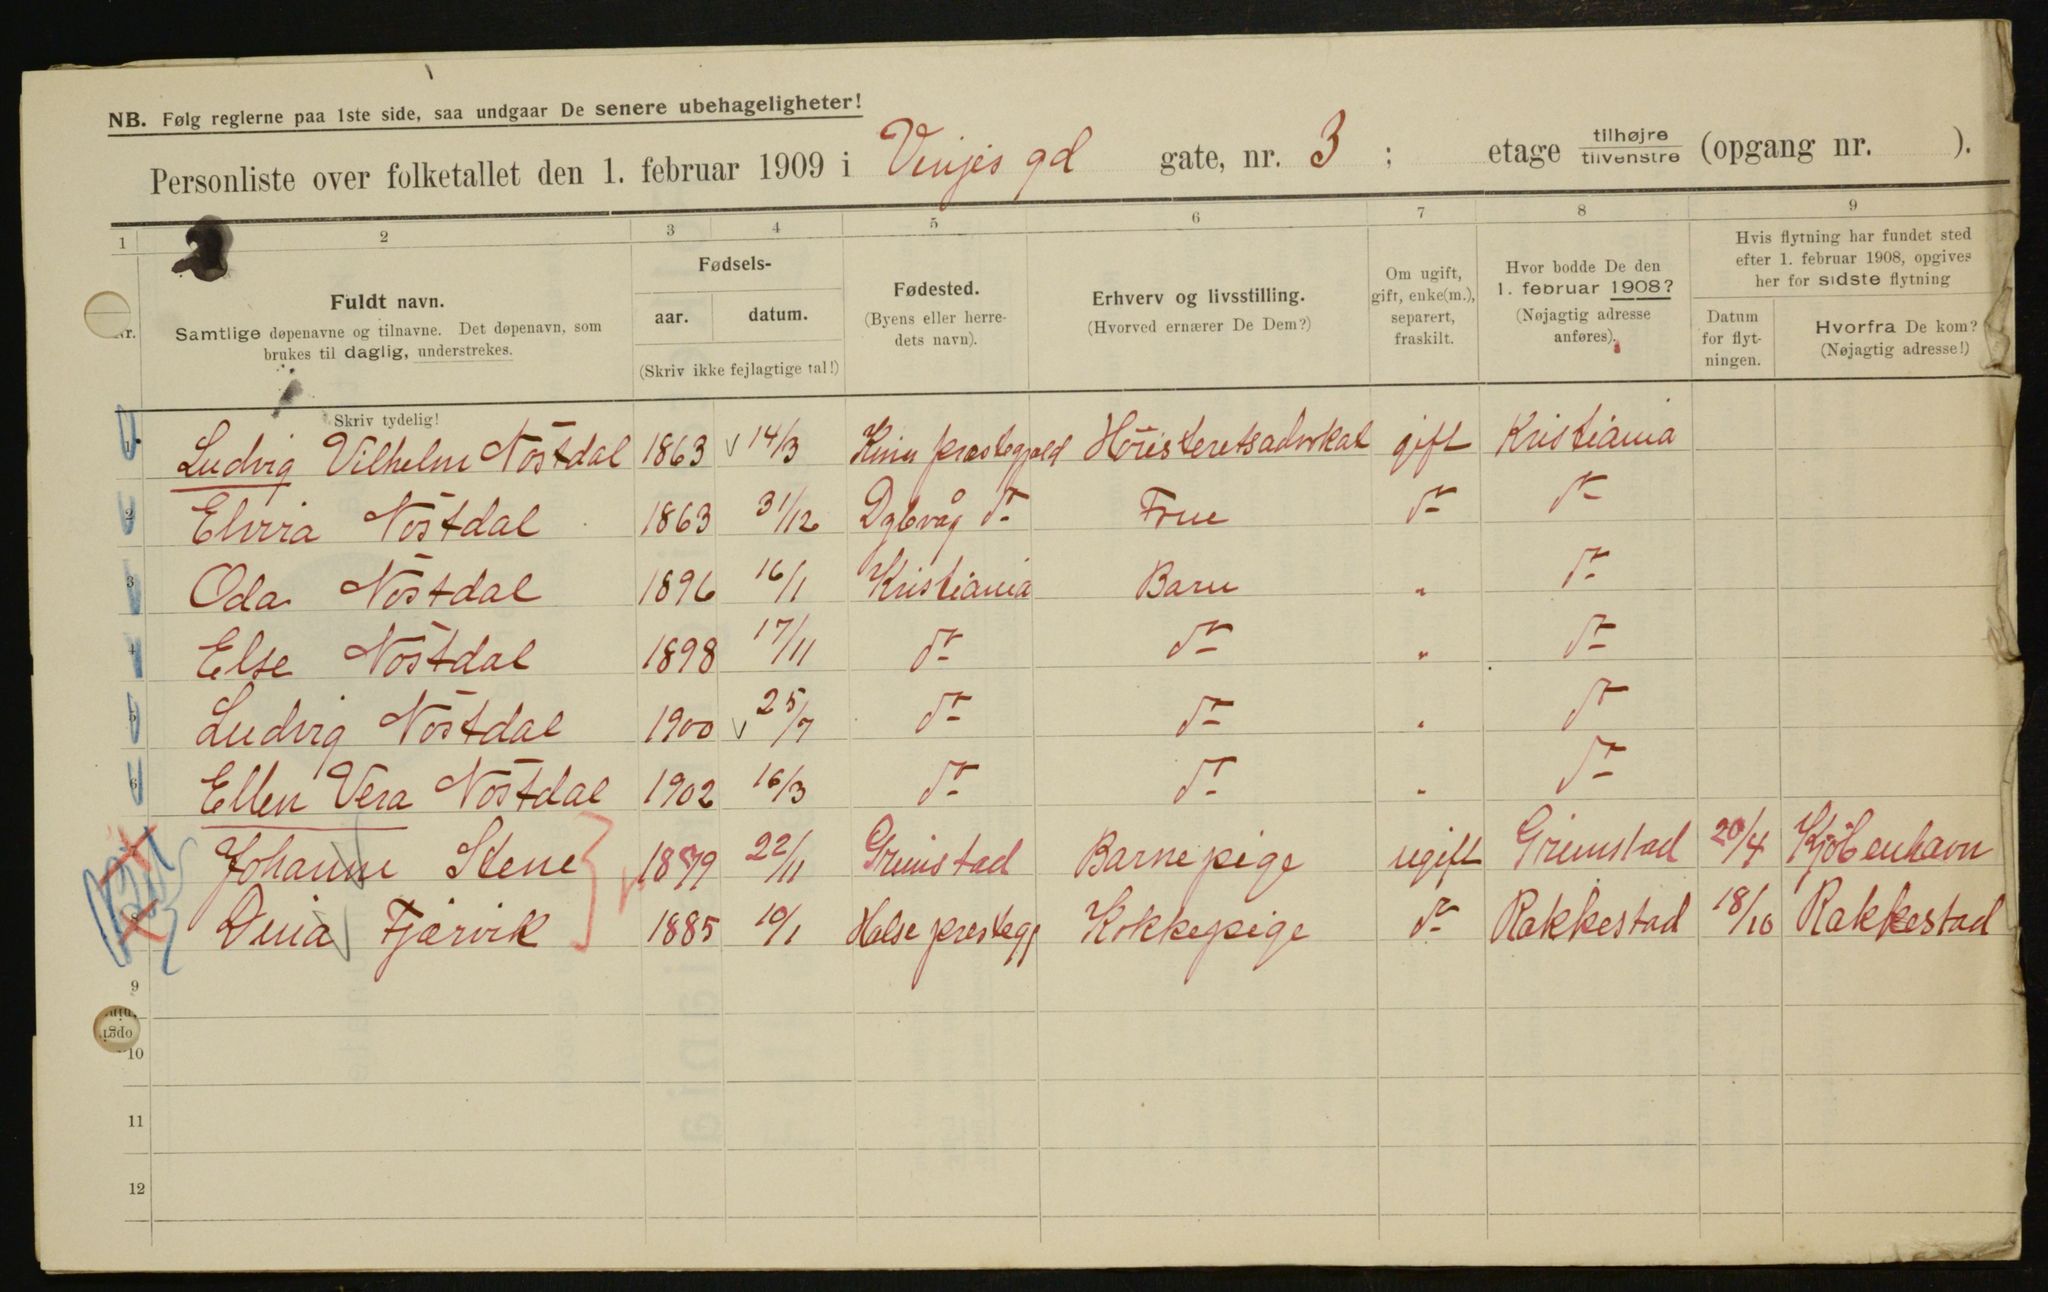 NB. Følg reglerne paa 1ste side, saa undgaar De senere ubehageligheter!
Personliste over folketallet den 1. februar 1909 i Vinjes gd gate, nr. 3 ; etage tilhøjre tilvenstre (opgang nr. ).
1 2 3 4 5 6 7 8 9
Nr.
Fuldt navn.
Samtlige døpenavne og tilnavne. Det døpenavn, som
brukes til daglig, understrekes.
Skriv tydelig!
Fødsels-
aar. datum.
(Skriv ikke fejlagtige tal!)
Fødested.
(Byens eller herre-
dets navn).
Erhverv og livsstilling.
(Hvorved ernærer De Dem?)
Om ugift,
gift, enke(m.),
separert,
fraskilt.
Hvor bodde De den
1. februar 1908?
(Nøjagtig adresse
anføres).
Hvis flytning har fundet sted
efter 1. februar 1908, opgives
her for sidste flytning
Datum
for flyt-
ningen.
Hvorfra De kom?
(Nøjagtig adresse!)
1 Ludvig Vilhelm Nöstdal 1863 14/3 Kinn præstegjeld Höiesteretsadvokat gift Kristiania
2 Elvira Nöstdal 1863 31/12 Dybvåg do Frue do do
3 Oda Nöstdal 1896 16/1 Kristiania Barn " do
4 Else Nöstdal 1898 17/11 do do " do
5 Ludvig Nöstdal 1900 25/7 do do " do
6 Ellen Vera Nöstdal 1902 16/3 do do " do
7 Johanne Stene 1879 22/11 Grimstad Barnepige ugift Grimstad 20/4 Kjöbenhavn
8 Dina Fjærvik 1885 10/1 Halse prestegj Kokkepige do Rakkestad 18/10 Rakkestad
9
10
11
12